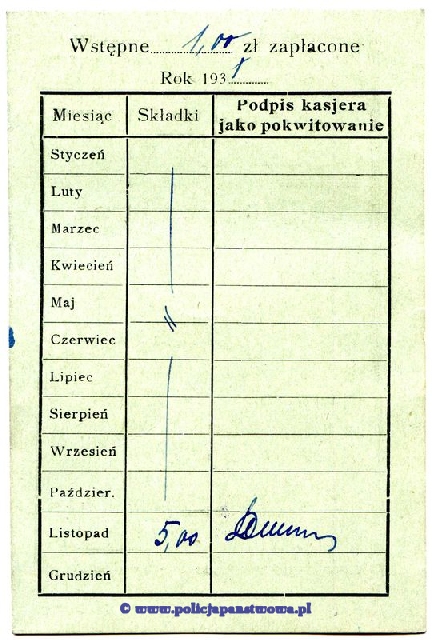 Wstępne 1,00 zł zapłacone
Rok 193
Miesiąc Składki Podpis kasjera jako pokwitowanie
Styczeń
Luty
Marzec
Kwiecień
Maj
Czerwiec
Lipiec
Sierpień
Wrzesień
Paździer.
Listopad 5,00
Grudzień
© www.policjapanstwowa.pl